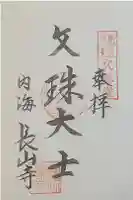 奉拝
文珠大士
内海
長山寺